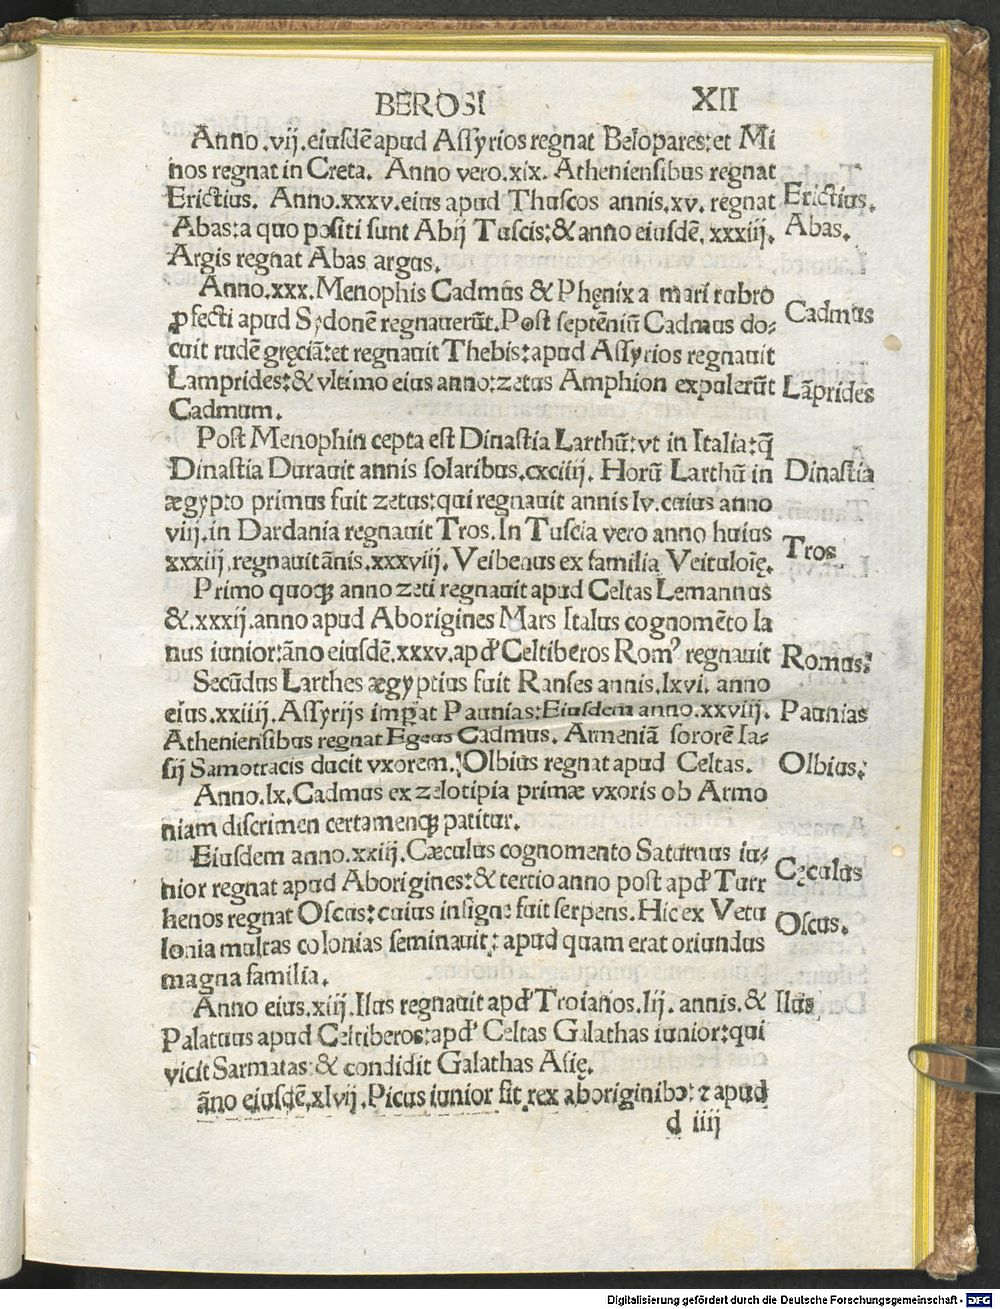 BEROSI XII
Anno .vij. eiusdē apud Assyrios regnat Belopares: et Mi
nos regnat in Creta. Anno vero .xix. Atheniensibus regnat
Erictius. Anno .xxxv. eius apud Thuscos annis .xv. regnat
Erictius.
Abas: a quo positi sunt Abij Tuscis: & anno eiusdē .xxxiij.
Abas.
Argis regnat Abas argus.
Anno .xxx. Menophis Cadmus & Phęnix a mari rubro
ꝓfecti apud Sydonē regnauerūt. Post septēniū Cadmus do⸗
Cadmus
cuit rudē gręciā: et regnauit Thebis: apud Assyrios regnauit
Lamprides: & vltimo eius anno: zetus Amphion expulerūt
Lāprides
Cadmum.
Post Menophin cepta est Dinastia Larthū: vt in Italia: q̄
Dinastia Durauit annis solaribus .cxciiij. Horū Larthū in
Dinastia
ægypto primus fuit zetus: qui regnauit annis lv. cuius anno
viij. in Dardania regnauit Tros. In Tuscia vero anno huius
Tros
xxxiij. regnauit ānis .xxxviij. Veibenus ex familia Veituloię.
Primo quoqꝫ anno zeti regnauit apud Celtas Lemannus
& .xxxij. anno apud Aborigines Mars Italus cognomēto Ia
nus iunior: āno eiusdē .xxxv. apď Celtiberos Romꝰ regnauit
Romus:
Secūdus Larthes ægyptius fuit Ranses annis .lxvi. anno
eius .xxiiij. Assyrijs imꝑat Paunias: Eiusdem anno .xxviij.
Paunias
Atheniensibus regnat Egeus Cadmus. Armeniā sororē Ia⸗
sij Samotracis ducit vxorem. Olbius regnat apud Celtas.
Olbius:
Anno .lx. Cadmus ex zelotipia primæ vxoris ob Armo
niam discrimen certamenqꝫ patitur.
Eiusdem anno .xxiij. Cæculus cognomento Saturnus iu⸗
nior regnat apud Aborigines: & tertio anno post apď Turr
Cęculus
henos regnat Oscus: cuius insigne fuit serpens. Hic ex Vetu
Oscus.
lonia multas colonias seminauit: apud quam erat oriundus
magna familia.
Anno eius .xiij. Ilus regnauit apď Troianos .lij. annis. &
Ilus
Palatuus apud Celtiberos: apď Celtas Galathas iunior: qui
vicit Sarmatas: & condidit Galathas Asię.
āno eiusdē .xlvij. Picus iunior fit rex aboriginibꝰ: ⁊ apud
d iiij
Digitalisierung gefördert durch die Deutsche Forschungsgemeinschaft - DFG